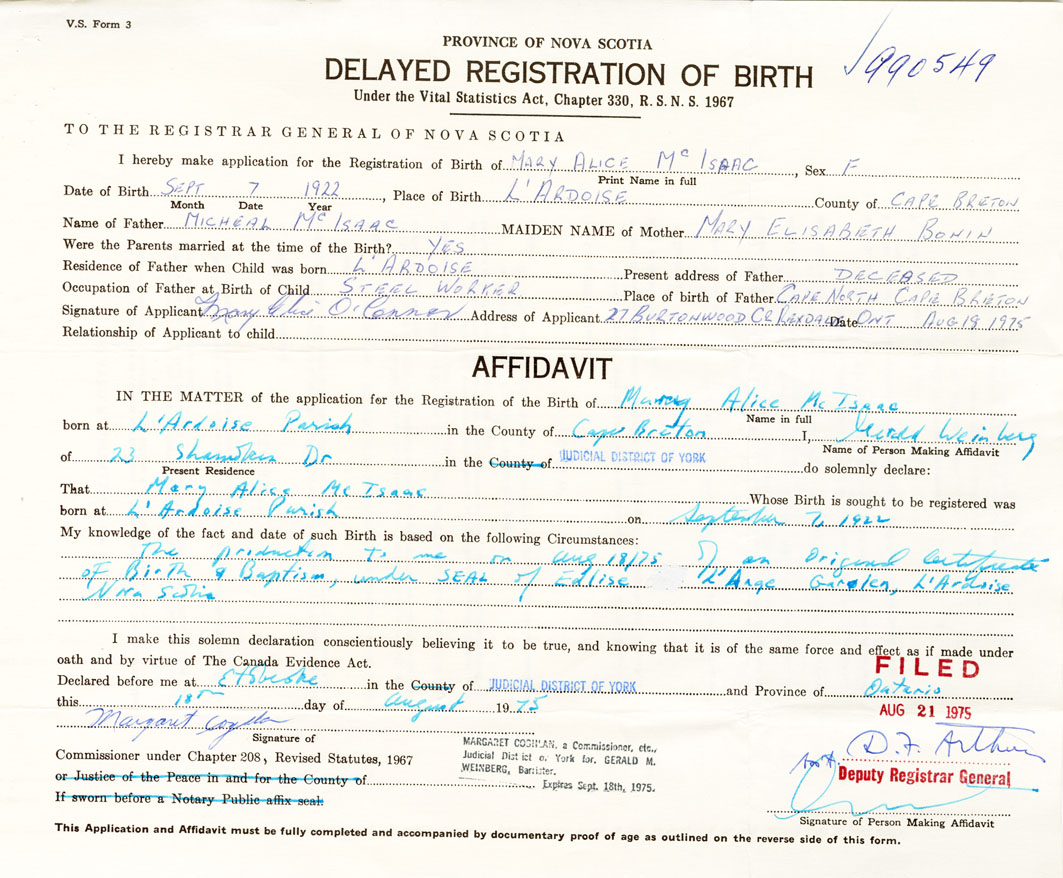 V.S. Form 3
PROVINCE OF NOVA SCOTIA
990549
DELAYED REGISTRATION OF BIRTH
Under the Vital Statistics Act, Chapter 330, R.S.N.S. 1967
TO THE REGISTRAR GENERAL OF NOVA SCOTIA
I hereby make application for the Registration of Birth of MARY ALICE Mc ISAAC, Sex F
Print Name in full
Date of Birth SEPT 7 1922, Place of Birth L'ARDOISE County of CAPE BRETON
Month Date Year
Name of Father MICHEAL Mc ISAAC MAIDEN NAME of Mother MARY ELISABETH BONIN
Were the Parents married at the time of the Birth? YES
Residence of Father when Child was born L'ARDOISE Present address of Father DECEASED
Occupation of Father at Birth of Child STEEL WORKER Place of birth of Father CAPE NORTH CAPE BRETON
Signature of Applicant Mary Alice O'Connor Address of Applicant 27 BURTONWOOD CR REXDALE ONT Date AUG 19 1975
Relationship of Applicant to child
AFFIDAVIT
IN THE MATTER of the application for the Registration of the Birth of Mary Alice Mc Isaac
Name in full
born at L'Ardoise Parish in the County of Cape Breton I, Gerald Weinberg
Name of Person Making Affidavit
of 23 Dr in the County of JUDICIAL DISTRICT OF YORK do solemnly declare:
Present Residence
That Mary Alice Mc Isaac Whose Birth is sought to be registered was
born at L'Ardoise Parish on September 7, 1922
My knowledge of the fact and date of such Birth is based on the following Circumstances:
The production to me on Aug 18/75 of an Original Certificate
of Birth & Baptism, under SEAL of L'Ange Gardien, L'Ardoise
Nova Scotia
I make this solemn declaration conscientiously believing it to be true, and knowing that it is of the same force and effect as if made under
oath and by virtue of The Canada Evidence Act.
FILED
Declared before me at Etobicoke in the County of JUDICIAL DISTRICT OF YORK and Province of Ontario
this 18th day of August 1975
AUG 21 1975
Margaret Coghlan
Signature of
Commissioner under Chapter 208, Revised Statutes, 1967
or Justice of the Peace in and for the County of
If sworn before a Notary Public affix seal.
MARGARET COGHLAN, a Commissioner, etc.,
Judicial District of York for. GERALD M.
WEINBERG, Barrister.
Expires Sept. 18th, 1975.
D.F. Arthur
Deputy Registrar General
Signature of Person Making Affidavit
This Application and Affidavit must be fully completed and accompanied by documentary proof of age as outlined on the reverse side of this form.